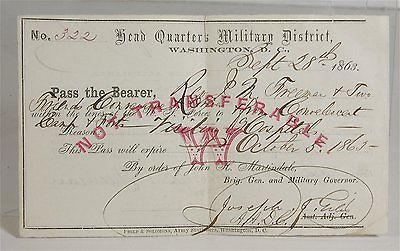 No. 322 Head Quarters Military District,
WASHINGTON, D. C.,
Sept 28th 1863.
Pass the Bearer, Freeman & Two
within the lines of the Forces to Convalescent
Camp
Reason, Visiting Hospital
This Pass will expire October 5th 1863
By order of John H. Martindale,
Brig. Gen. and Military Governor.
Joseph J.
A.D.C. Asst. Adj. Gen.
NOT TRANSFERABLE
W
PHILP & SOLOMONS, Army Stationers, Washington, D. C.